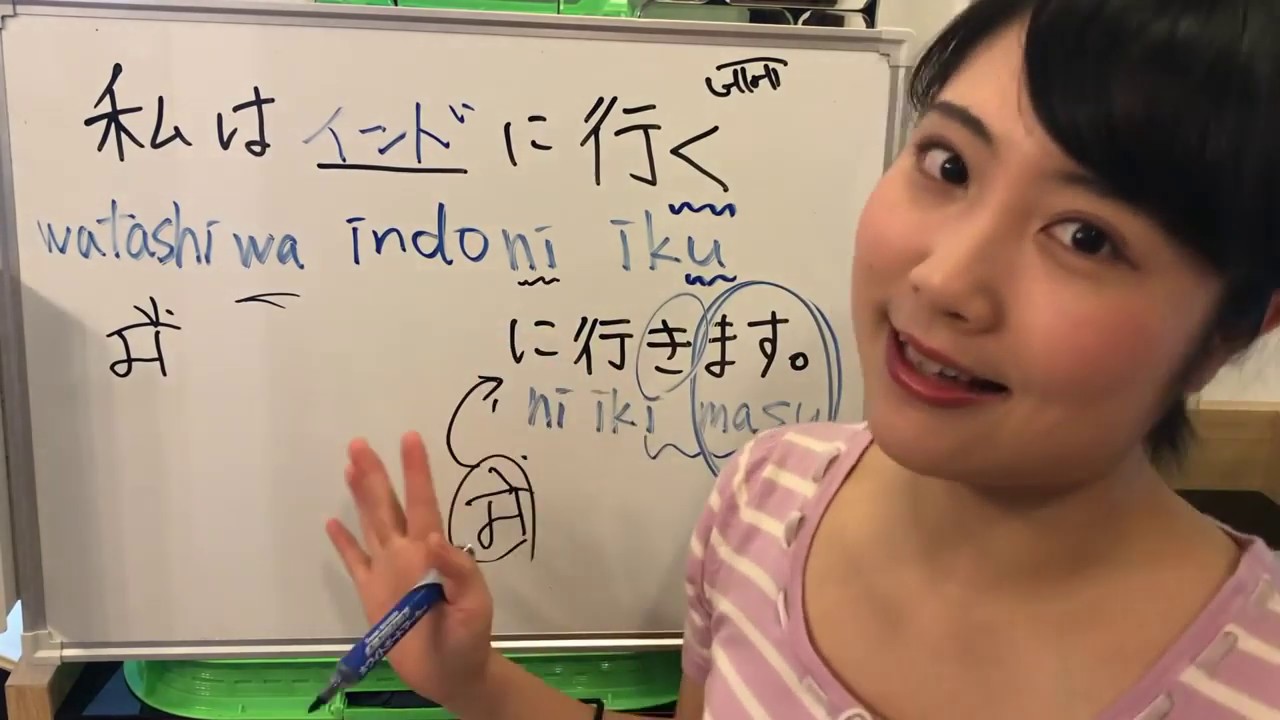 जाना
私は インド に 行く
watashi wa indo ni iku
में
に 行きます。
ni iki masu
में